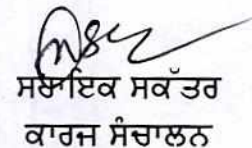 ਸਹਾਇਕ ਸਕੱਤਰ
ਕਾਰਜ ਸੰਚਾਲਨ